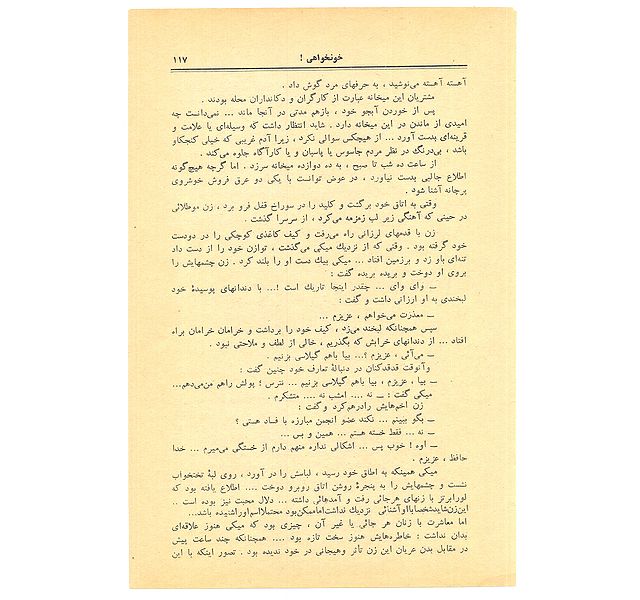 خونخواهی !
۱۱۷
آهسته آهسته می‌نوشید ، به حرفهای مرد گوش داد .
مشتریان این میخانه عبارت از کارگران و دکانداران محله بودند .
پس از خوردن آبجو خود ، بازهم مدتی در آنجا ماند ... نمی‌دانست چه
امیدی از ماندن در این میخانه دارد . شاید انتظار داشت که وسیله‌ای یا علامت و
قرینه‌ای بدست آورد ... از هیچکس سوالی نکرد ، زیرا آدم غریبی که خیلی کنجکاو
باشد ، بی‌درنگ در نظر مردم جاسوس یا پاسبان و یا کارآگاه جلوه می‌کند .
از ساعت ده شب تا صبح ، به ده دوازده میخانه سرزد . اما گرچه هیچگونه
اطلاع جالبی بدست نیاورد ، در عوض توانست با یکی دو عرق فروش خوشروی
پرچانه آشنا شود .
وقتی به اتاق خود برگشت و کلید را در سوراخ قفل فرو برد ، زن موطلائی
در حینی که آهنگی زیر لب زمزمه می‌کرد ، از سرسرا گذشت .
زن با قدمهای لرزانی راه می‌رفت و کیف کاغذی کوچکی را در دودست
خود گرفته بود . وقتی که از نزدیك میکی می‌گذشت ، توازن خود را از دست داد
تنه‌ای باو زد و برزمین افتاد ... میکی بیك دست او را بلند کرد . زن چشمهایش را
بروی او دوخت و بریده بریده گفت :
ــ وای وای ... چقدر اینجا تاریك است !... با دندانهای پوسیدهٔ خود
لبخندی به او ارزانی داشت و گفت :
ــ معذرت می‌خواهم ، عزیزم ...
سپس همچنانکه لبخند می‌زد ، کیف خود را برداشت و خرامان خرامان براه
افتاد ... از دندانهای خرابش که بگذریم ، خالی از لطف و ملاحتی نبود .
ــ می‌آئی ، عزیزم ؟... بیا باهم گیلاسی بزنیم .
وآنوقت قدقدکنان در دنبالهٔ تعارف خود چنین گفت :
ــ بیا ، عزیزم ، بیا باهم گیلاسی بزنیم ... نترس ؛ پولش راهم من‌می‌دهم...
میکی گفت : ــ نه .... امشب نه .... متشکرم .
زن اخمهایش رادرهم‌کرد وگفت :
ــ بگو ببینم ... نکند عضو انجمن مبارزه با فساد هستی ؟
ــ نه ... فقط خسته هستم ... همین و بس ...
ــ اوه ! خوب پس ... اشکالی نداره منهم دارم از خستگی می‌میرم ... خدا
حافظ ، عزیزم .
میکی همینکه به اطاق خود رسید ، لباسش را در آورد ، روی لبهٔ تختخواب
نشست و چشمهایش را به پنجرهٔ روشن اتاق روبرو دوخت .... اطلاع یافته بود که
لورابرتز با زنهای هرجائی رفت و آمدهائی داشته ... دلال محبت نیز بوده است ..
این‌زن‌شایدشخصاباا‌وآشنائی نزدیك نداشت‌اماممکن‌بود محتملااسم‌اوراشنیده باشد...
اما معاشرت با زنان هر جائی یا غیر آن ، چیزی بود که میکی هنوز علاقه‌ای
بدان نداشت : خاطره‌هایش هنوز سخت تازه بود .... همچنانکه چند ساعت پیش
در مقابل بدن عریان این زن تأثر وهیجانی در خود ندیده بود . تصور اینکه با این